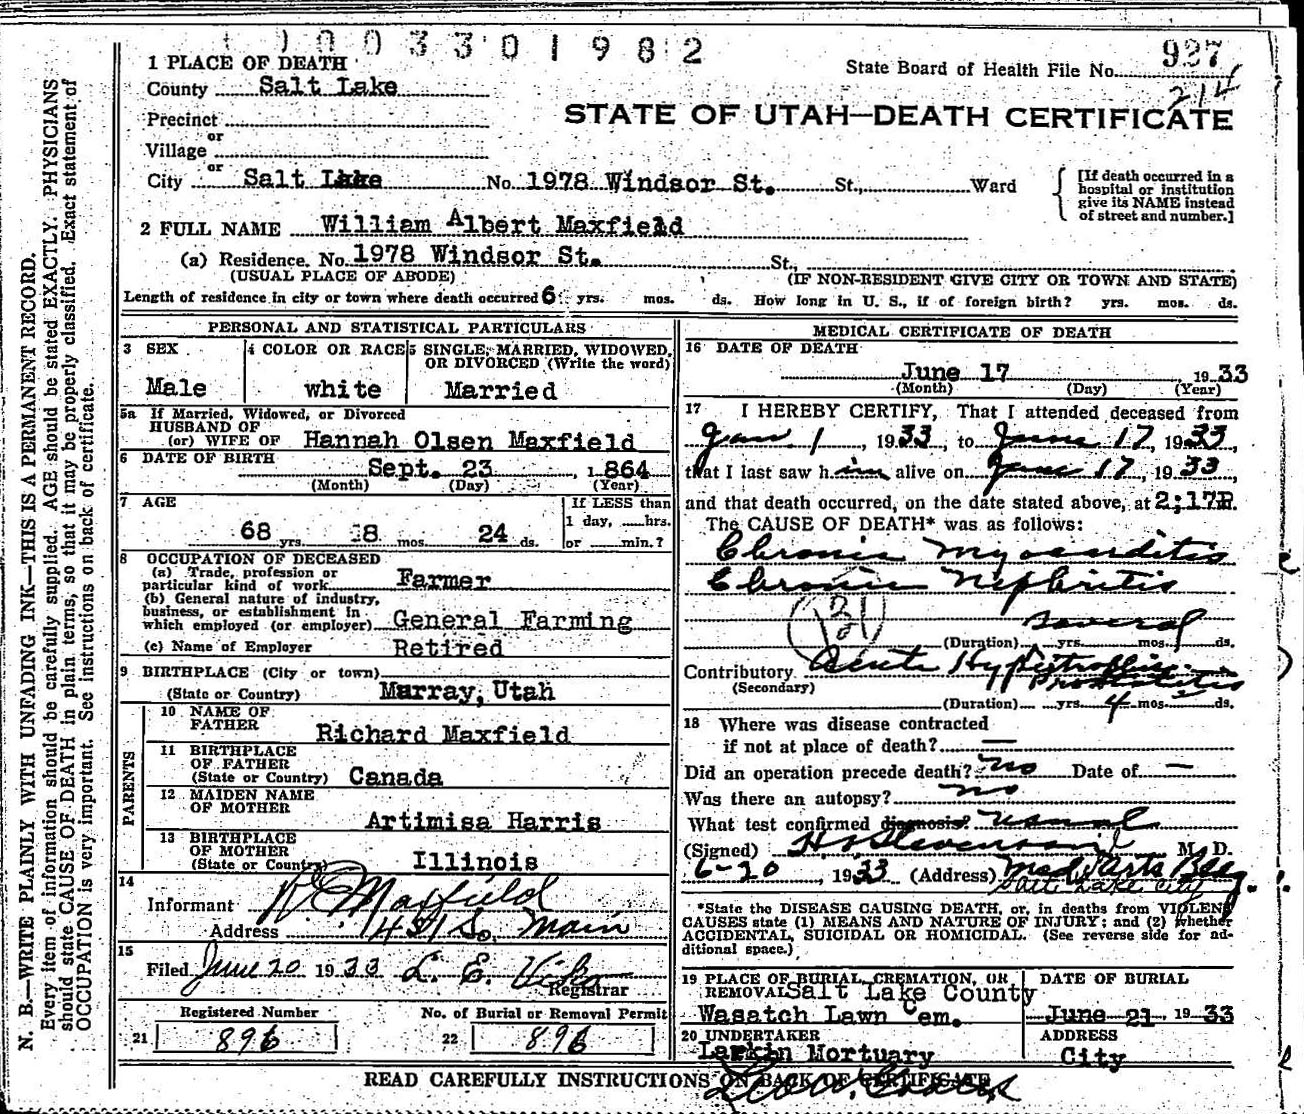 1003301982
1 PLACE OF DEATH
State Board of Health File No. 927
214
County Salt Lake
STATE OF UTAH—DEATH CERTIFICATE
Precinct
or
Village
or
City Salt Lake No. 1978 Windsor St. St., Ward
[If death occurred in a
hospital or institution
give its NAME instead
of street and number.]
2 FULL NAME William Albert Maxfield
(a) Residence. No. 1978 Windsor St. St.,
(USUAL PLACE OF ABODE) (IF NON-RESIDENT GIVE CITY OR TOWN AND STATE)
Length of residence in city or town where death occurred 6 yrs. mos. ds. How long in U. S., if of foreign birth? yrs. mos. ds.
PERSONAL AND STATISTICAL PARTICULARS
3 SEX 4 COLOR OR RACE 5 SINGLE, MARRIED, WIDOWED,
OR DIVORCED (Write the word)
Male white Married
5a If Married, Widowed, or Divorced
HUSBAND OF
(or) WIFE OF Hannah Olsen Maxfield
6 DATE OF BIRTH
Sept. 23, 1864
(Month) (Day) (Year)
7 AGE If LESS than
1 day, hrs.
68 yrs. 8 mos. 24 ds. or min.?
8 OCCUPATION OF DECEASED
(a) Trade, profession or
particular kind of work Farmer
(b) General nature of industry,
business, or establishment in
which employed (or employer) General Farming
(c) Name of Employer Retired
9 BIRTHPLACE (City or town)
(State or Country) Murray, Utah
PARENTS
10 NAME OF
FATHER Richard Maxfield
11 BIRTHPLACE
OF FATHER
(State or Country) Canada
12 MAIDEN NAME
OF MOTHER Artimisa Harris
13 BIRTHPLACE
OF MOTHER
(State or Country) Illinois
14
Informant Maxfield
Address So. Main
15
Filed June 20 1933 L. E. Viko
Registrar
Registered Number No. of Burial or Removal Permit
21 896 22 896
MEDICAL CERTIFICATE OF DEATH
16 DATE OF DEATH
June 17 1933
(Month) (Day) (Year)
17 I HEREBY CERTIFY, That I attended deceased from
Jan 1, 1933, to June 17, 1933,
that I last saw him alive on June 17, 1933,
and that death occurred, on the date stated above, at 2;17P.
The CAUSE OF DEATH* was as follows:
Chronic Myocarditis
Chronic Nephritis
several
(Duration) yrs. mos. ds.
Contributory Acute Hypertrophic
(Secondary) Prostatitis
(Duration) yrs. 4 mos. ds.
18 Where was disease contracted
if not at place of death? —
Did an operation precede death? no Date of —
Was there an autopsy? no
What test confirmed diagnosis? usual
(Signed) H Stevenson M. D.
6-20, 1933 (Address) Med Arts Bldg.
Salt Lake City
*State the DISEASE CAUSING DEATH, or, in deaths from VIOLENT
CAUSES state (1) MEANS AND NATURE OF INJURY; and (2) whether
ACCIDENTAL, SUICIDAL OR HOMICIDAL. (See reverse side for ad-
ditional space.)
19 PLACE OF BURIAL, CREMATION, OR DATE OF BURIAL
REMOVAL Salt Lake County
Wasatch Lawn Cem. June 21 1933
20 UNDERTAKER ADDRESS
Larkin Mortuary City
READ CAREFULLY INSTRUCTIONS ON BACK OF CERTIFICATE
N. B.—WRITE PLAINLY WITH UNFADING INK—THIS IS A PERMANENT RECORD.
Every item of information should be carefully supplied. AGE should be stated EXACTLY. PHYSICIANS
should state CAUSE OF DEATH in plain terms, so that it may be properly classified. Exact statement of
OCCUPATION is very important. See instructions on back of certificate.